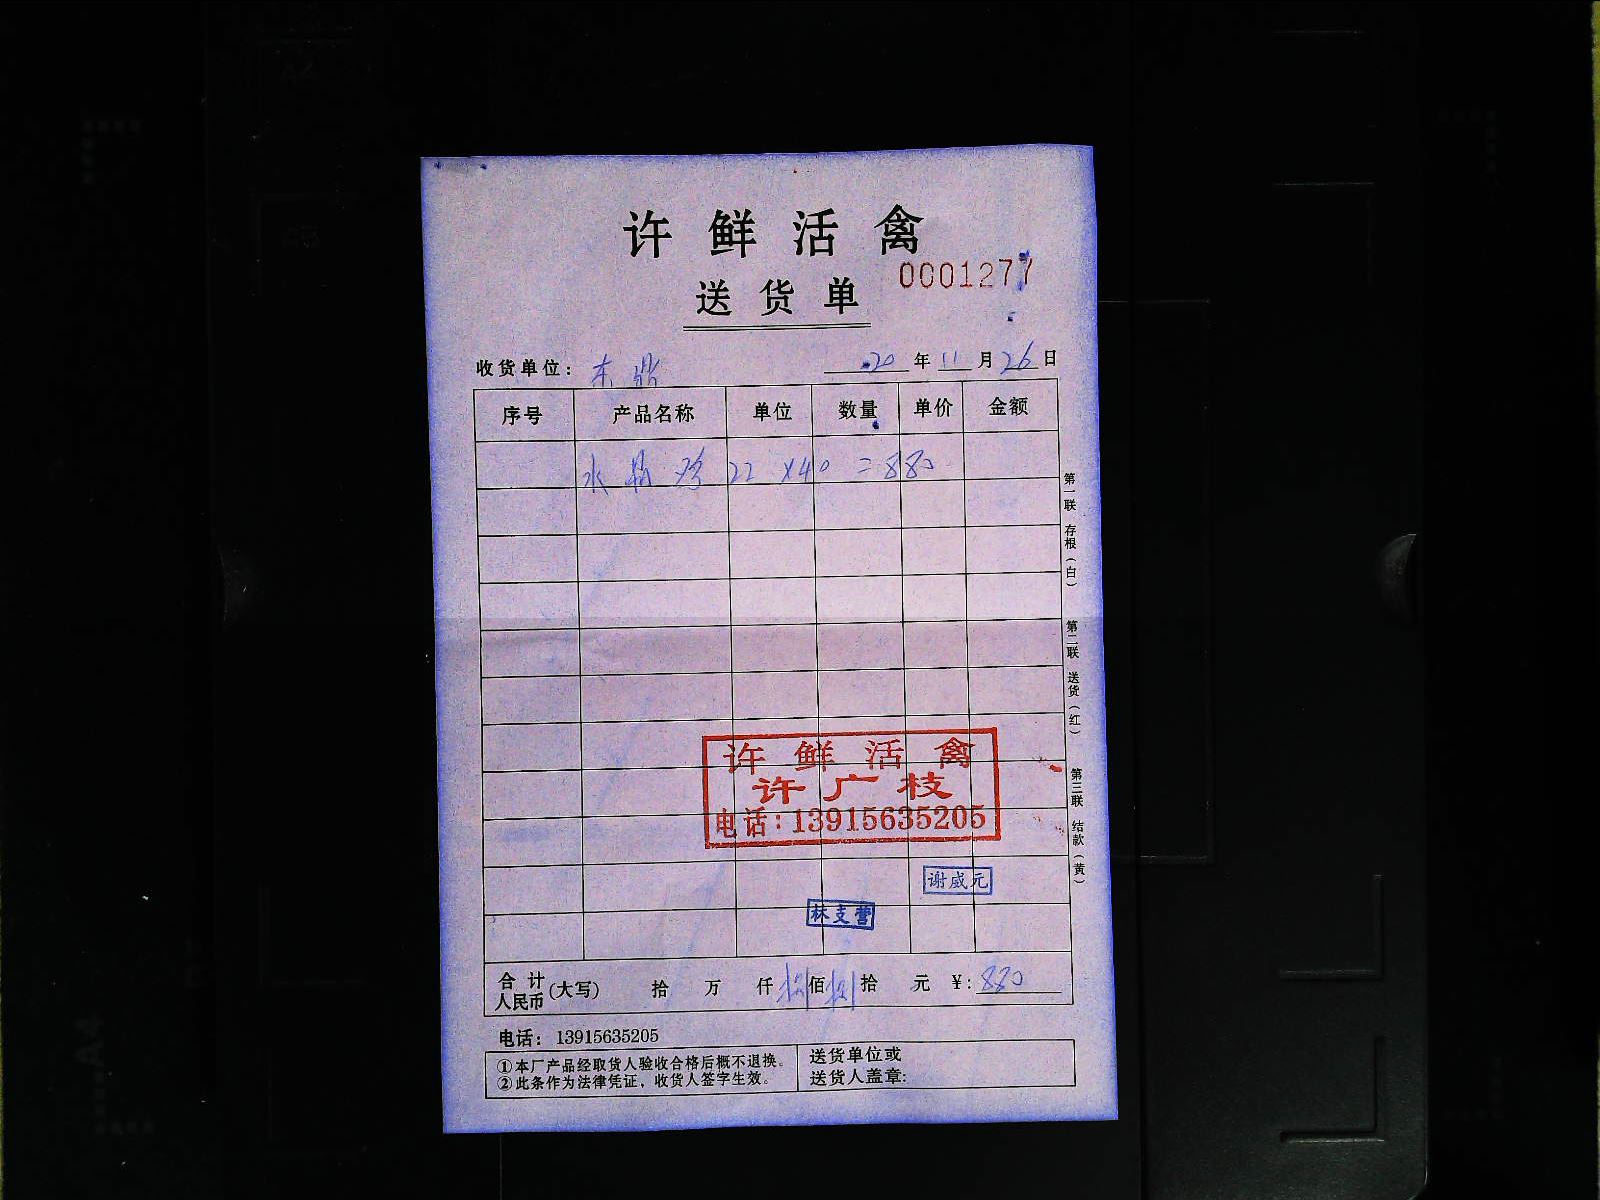 许鲜活禽
0001277
送货单
收货单位：东鼎 20年11月26日
序号 产品名称 单位 数量 单价 金额
水晶鸡 22 x40 =880
第一联 存根（白）
第二联 送货（红）
第三联 结款（黄）
许鲜活禽
许广枝
电话：13915635205
谢威元
林支营
合计人民币(大写) 拾 万 仟 捌佰捌拾 元 ¥:880
电话：13915635205
①本厂产品经取货人验收合格后概不退换。
②此条作为法律凭证，收货人签字生效。
送货单位或
送货人盖章: